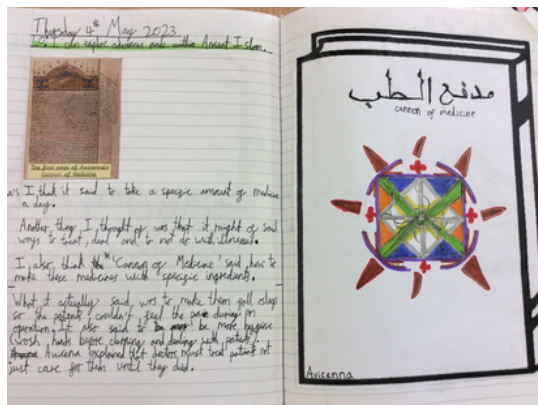 Thursday 4th May 2023
L.O. I can explore advances made within Ancient Islam.
The first page of Avicenna's
Cannon of Medicine
I think it said to take a specific amount of medicine
a day.
Another thing I thought of was that it might of said
ways to treat, deal and to not do with illnesses.
I also think the 'Cannon of Medicine' said how to
make these medicines with specific ingredients.
What it actually said, was to make them fall asleep
so the patients couldn't feel the pain during an
operation. It also said to be more hygiene
(wash hands before clothing and dealing with patients).
Avicenna explained that doctors must treat patients not
just care for them until they died.
مدفع الطب
cannon of medicine
Avicenna